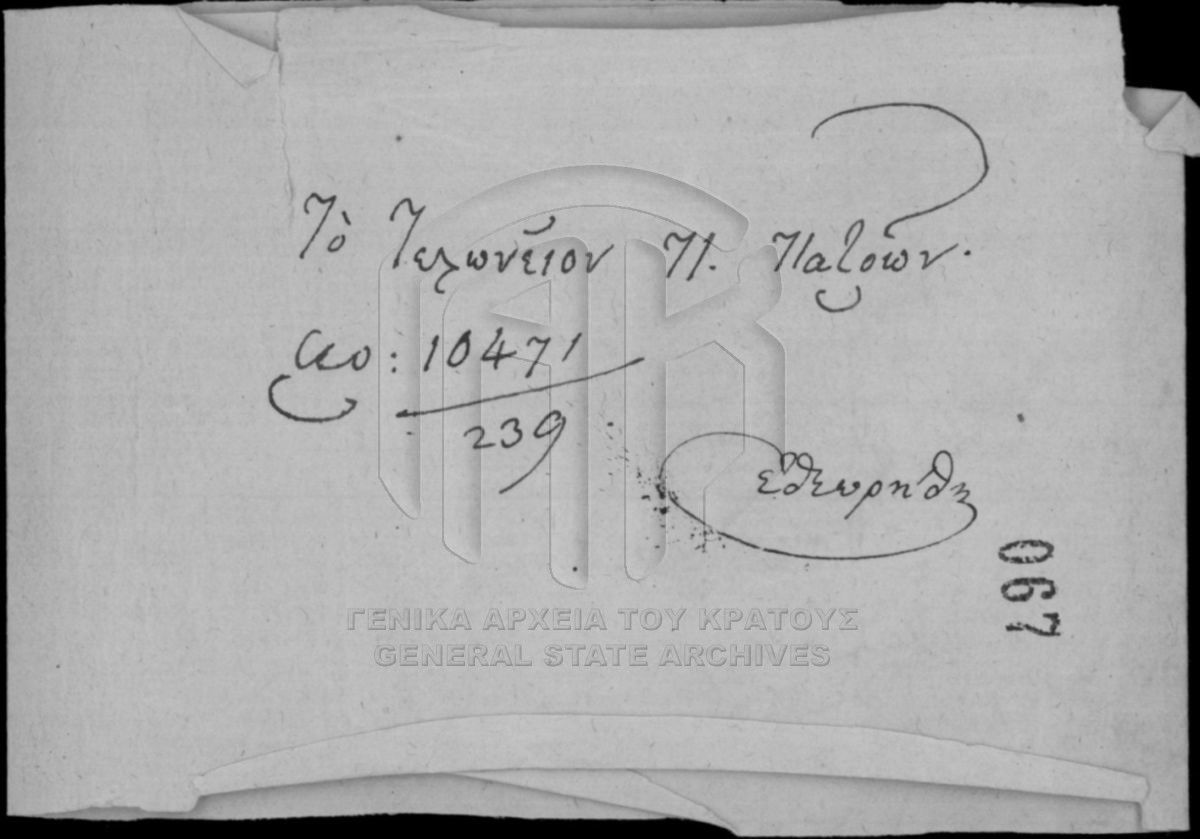 Τὸ Τελωνεῖον Π. Πατρῶν.
10471
239
ἐθεωρήθη
067
ΓΕΝΙΚΑ ΑΡΧΕΙΑ ΤΟΥ ΚΡΑΤΟΥΣ
GENERAL STATE ARCHIVES